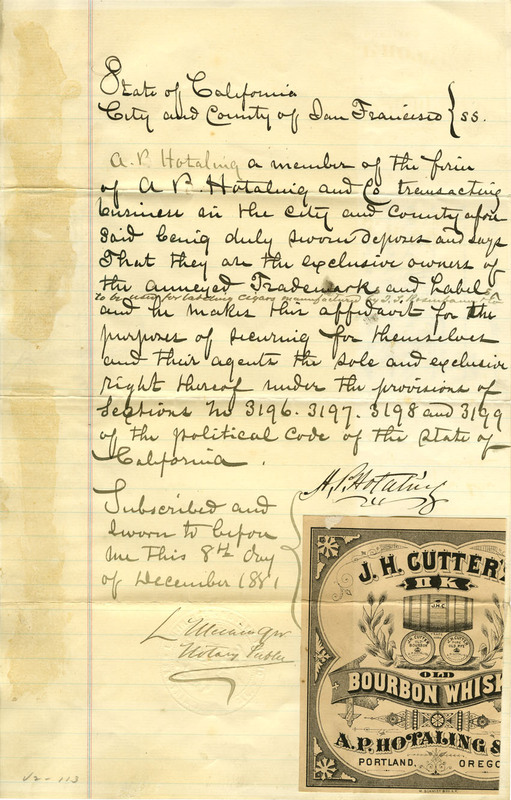 State of California
City and County of San Francisco } ss.
A. P. Hotaling a member of the firm
of A. P. Hotaling and Co transacting
business in the City and County afore
said being duly sworn deposes and says
That they are the exclusive owners of
the annexed Trademark and Label
to be used for labeling cigars manufactured by
and he makes this affidavit for the
purposes of securing for themselves
and their agents the sole and exclusive
right thereof under the provisions of
Sections No 3196. 3197. 3198 and 3199
of the political Code of the State of
California.
A. P. Hotaling
Subscribed and
sworn to before
me this 8th day
of December 1881
Notary Public
J. H. CUTTER'S
II K
J.H.C.
J.H. CUTTER OLD BOURBON
OLD RYE
OLD
BOURBON WHISK
A.P. HOTALING &
PORTLAND, OREGO
V2-113